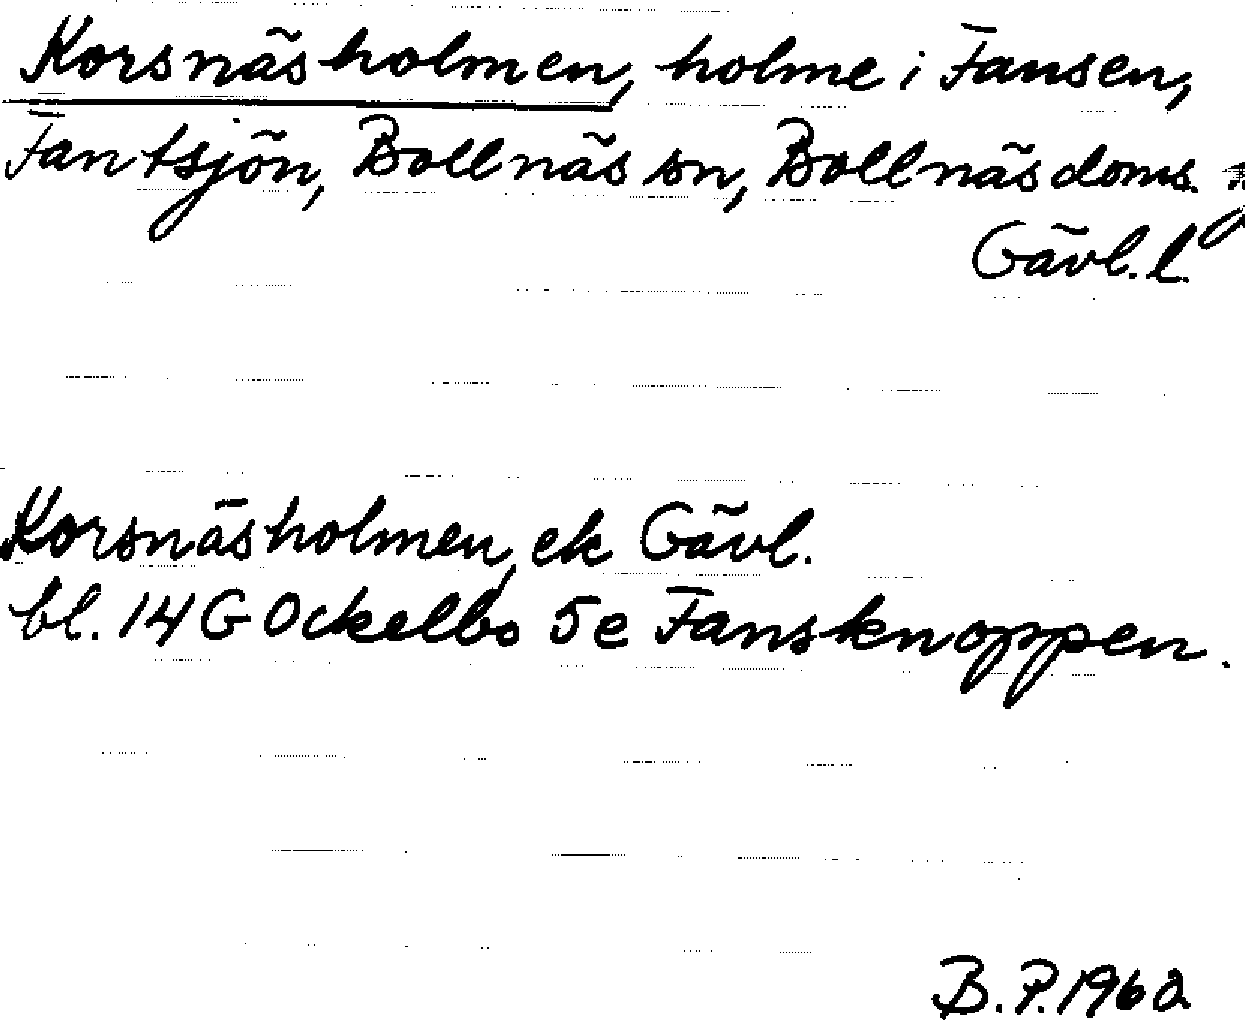 Korsnäsholmen, holme i Fansen,
Fantsjön, Bollnäs sn, Bollnäs doms.
Gävl. l.
Korsnäsholmen, ek Gävl.
bl. 14 G Ockelbo 5e Fansknoppen.
B. P. 1962